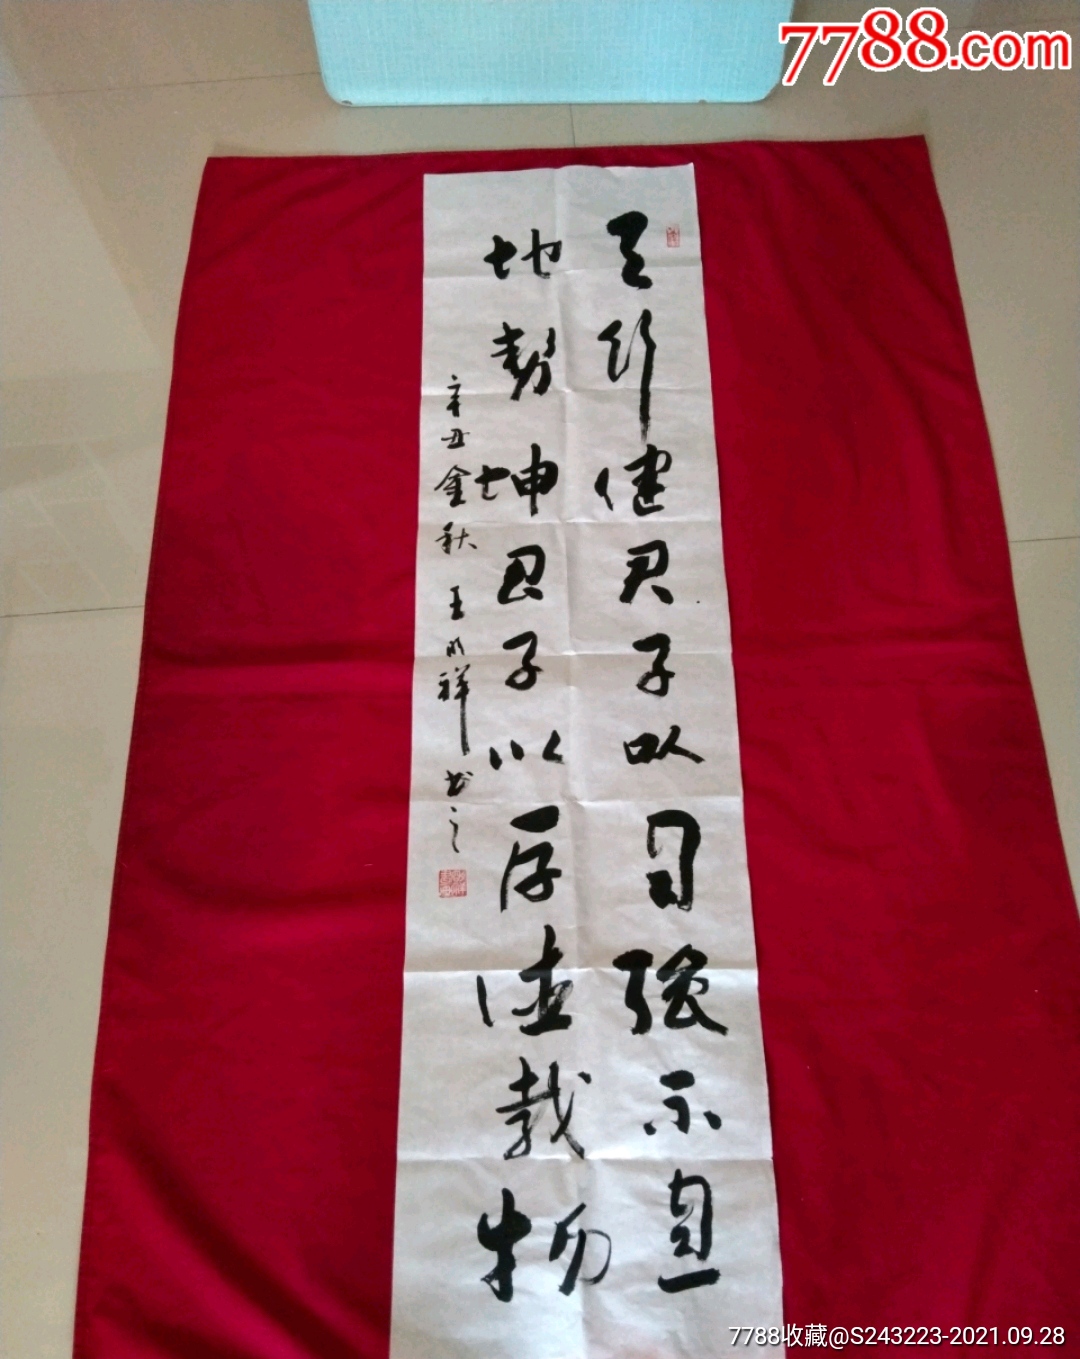 7788.com
天行健君子以自强不息
地势坤君子以厚德载物
辛丑金秋 王明祥书之
7788收藏@S243223-2021.09.28